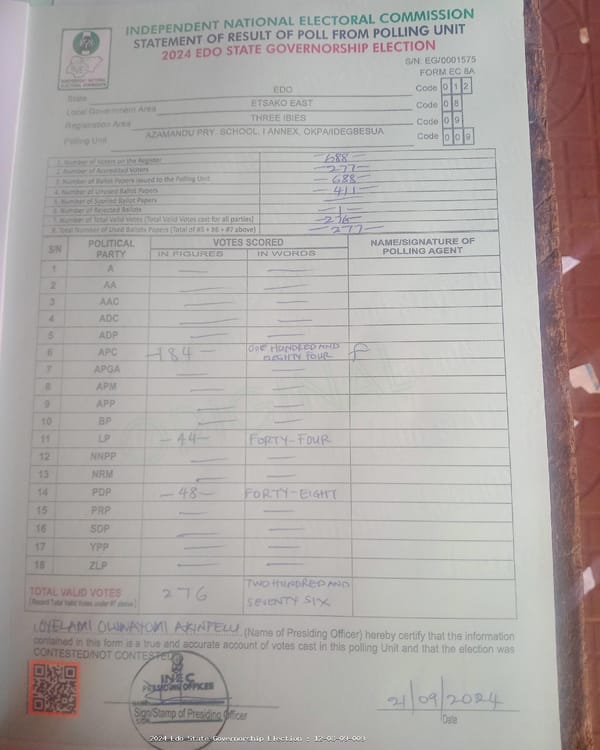 INDEPENDENT NATIONAL ELECTORAL COMMISSION
STATEMENT OF RESULT OF POLL FROM POLLING UNIT
2024 EDO STATE GOVERNORSHIP ELECTION
S/N: EG/0001575
FORM EC 8A
INEC
INDEPENDENT NATIONAL ELECTORAL COMMISSION
State EDO Code 0 1 2
Local Government Area ETSAKO EAST Code 0 8
Registration Area THREE IBIES Code 0 9
Polling Unit AZAMANDU PRY. SCHOOL, I ANNEX, OKPA/IDEGBESUA Code 0 0 9
1. Number of Voters on the Register —688—
2. Number of Accredited Voters —277—
3. Number of Ballot Papers issued to the Polling Unit —688—
4. Number of Unused Ballot Papers —411—
5. Number of Spoiled Ballot Papers —
6. Number of Rejected Ballots —1—
7. Number of Total Valid Votes (Total Valid Votes cast for all parties) —276—
8. Total Number of Used Ballots Papers (Total of #5 + #6 + #7 above) —277—
S/N POLITICAL PARTY VOTES SCORED NAME/SIGNATURE OF POLLING AGENT
IN FIGURES IN WORDS
1 A — —
2 AA — —
3 AAC — —
4 ADC — —
5 ADP — —
6 APC —184— ONE HUNDRED AND EIGHTY FOUR
7 APGA — —
8 APM — —
9 APP — —
10 BP — —
11 LP —44— FORTY-FOUR
12 NNPP — —
13 NRM — —
14 PDP —48— FORTY-EIGHT
15 PRP — —
16 SDP — —
17 YPP — —
18 ZLP — —
TOTAL VALID VOTES 276 TWO HUNDRED AND
[Record Total Valid Votes under #7 above] SEVENTY SIX
I, OYELAMI OLUWAYOMI AKINPELU (Name of Presiding Officer) hereby certify that the information
contained in this form is a true and accurate account of votes cast in this polling Unit and that the election was
CONTESTED/NOT CONTESTED
INEC
PRESIDING OFFICER
Sign/Stamp of Presiding Officer
21/09/2024
Date
2024 Edo State Governorship Election : 12-08-09-009